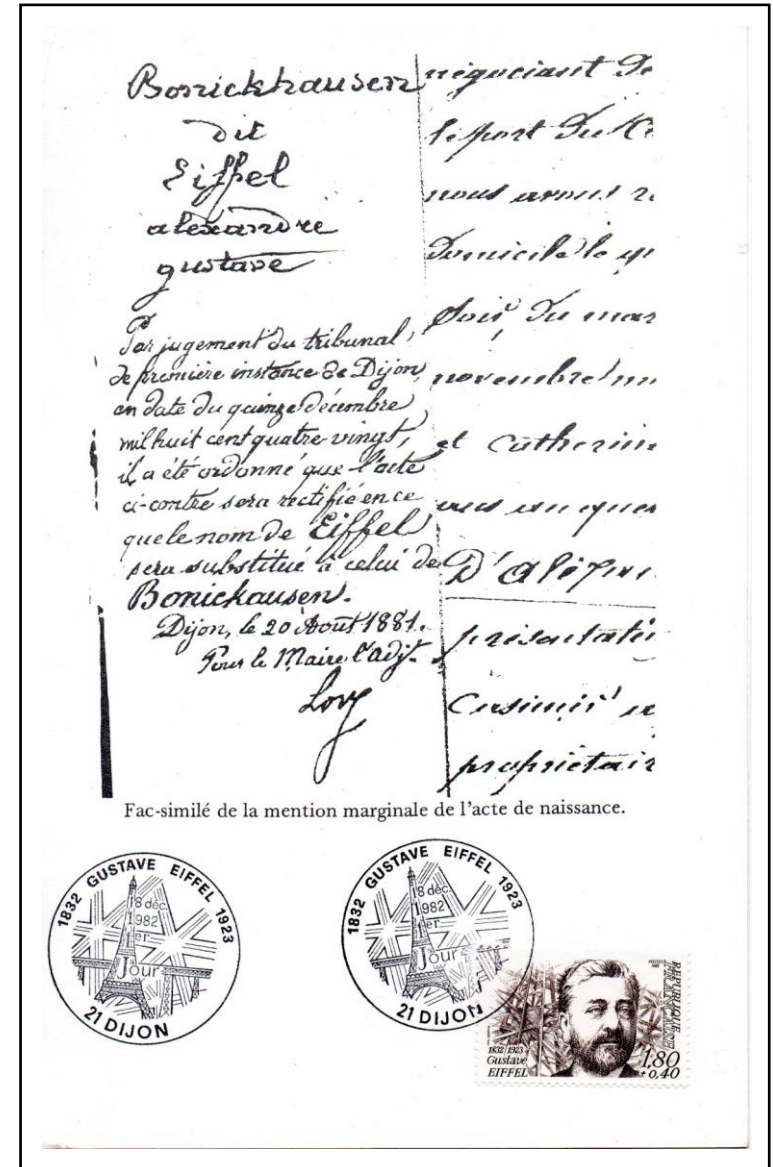 Bonickhausen
dit
Eiffel
alexandre
gustave
Par jugement du tribunal
de première instance de Dijon,
en date du quinze décembre
mil huit cent quatre vingt,
il a été ordonné que l'acte
ci-contre sera rectifié en ce
que le nom de Eiffel
sera substitué à celui de
Bonickausen.
Dijon, le 20 Août 1881.
Pour le Maire l'adjt.
négociant
le port du
nous avons
Domicile le
Soir, du mar
novembre
et Catherine
D'
présentati
Casimir
propriétair
Fac-similé de la mention marginale de l'acte de naissance.
1832 GUSTAVE EIFFEL 1923
18 déc.
1982
1er
Jour
21 DIJON
1832 GUSTAVE EIFFEL 1923
18 déc.
1982
1er
Jour
21 DIJON
REPUBLIQUE
FRANÇAISE
1832 1923
Gustave
EIFFEL
1,80
+0,40